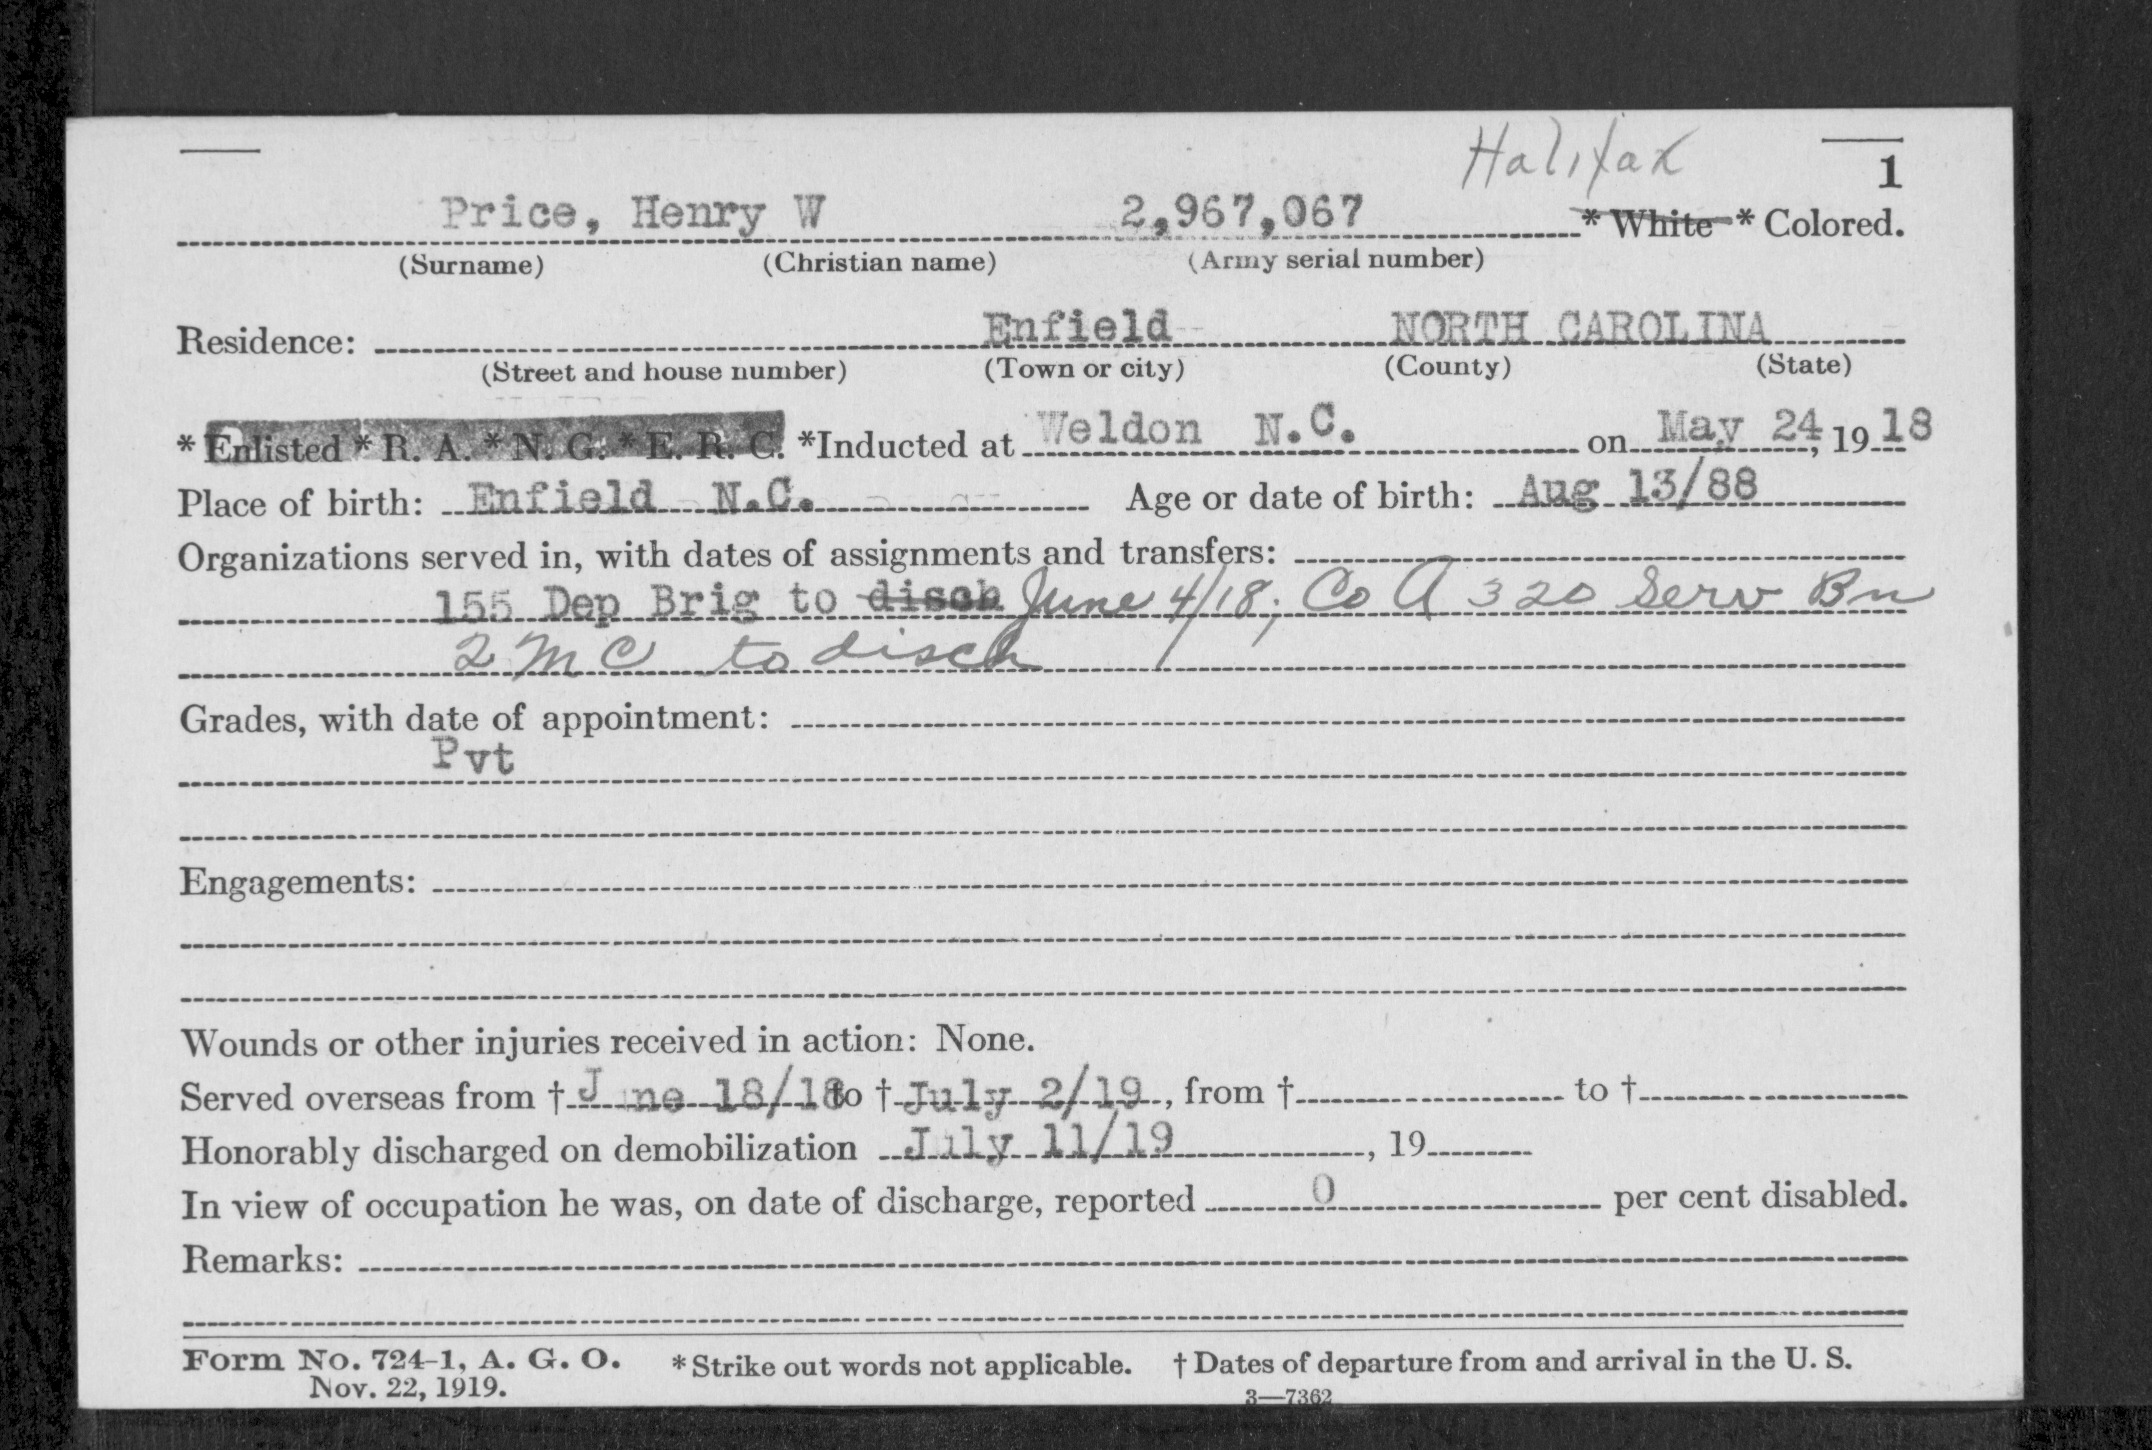 Halifax
1
Price, Henry W 2,967,067 * White * Colored.
(Surname) (Christian name) (Army serial number)
Residence: Enfield NORTH CAROLINA
(Street and house number) (Town or city) (County) (State)
* Enlisted * R. A. * N. G. * E. R. C. *Inducted at Weldon N.C. on May 24, 19 18
Place of birth: Enfield N.C. Age or date of birth: Aug 13/88
Organizations served in, with dates of assignments and transfers:
155 Dep Brig to disch June 4/18; Co A 320 Serv Bn
2 M C to disch
Grades, with date of appointment:
Pvt
Engagements:
Wounds or other injuries received in action: None.
Served overseas from † J ne 18/18 to † July 2/19, from † to †
Honorably discharged on demobilization July 11/19, 19
In view of occupation he was, on date of discharge, reported 0 per cent disabled.
Remarks:
Form No. 724-1, A. G. O. * Strike out words not applicable. † Dates of departure from and arrival in the U. S.
Nov. 22, 1919. 3—7362